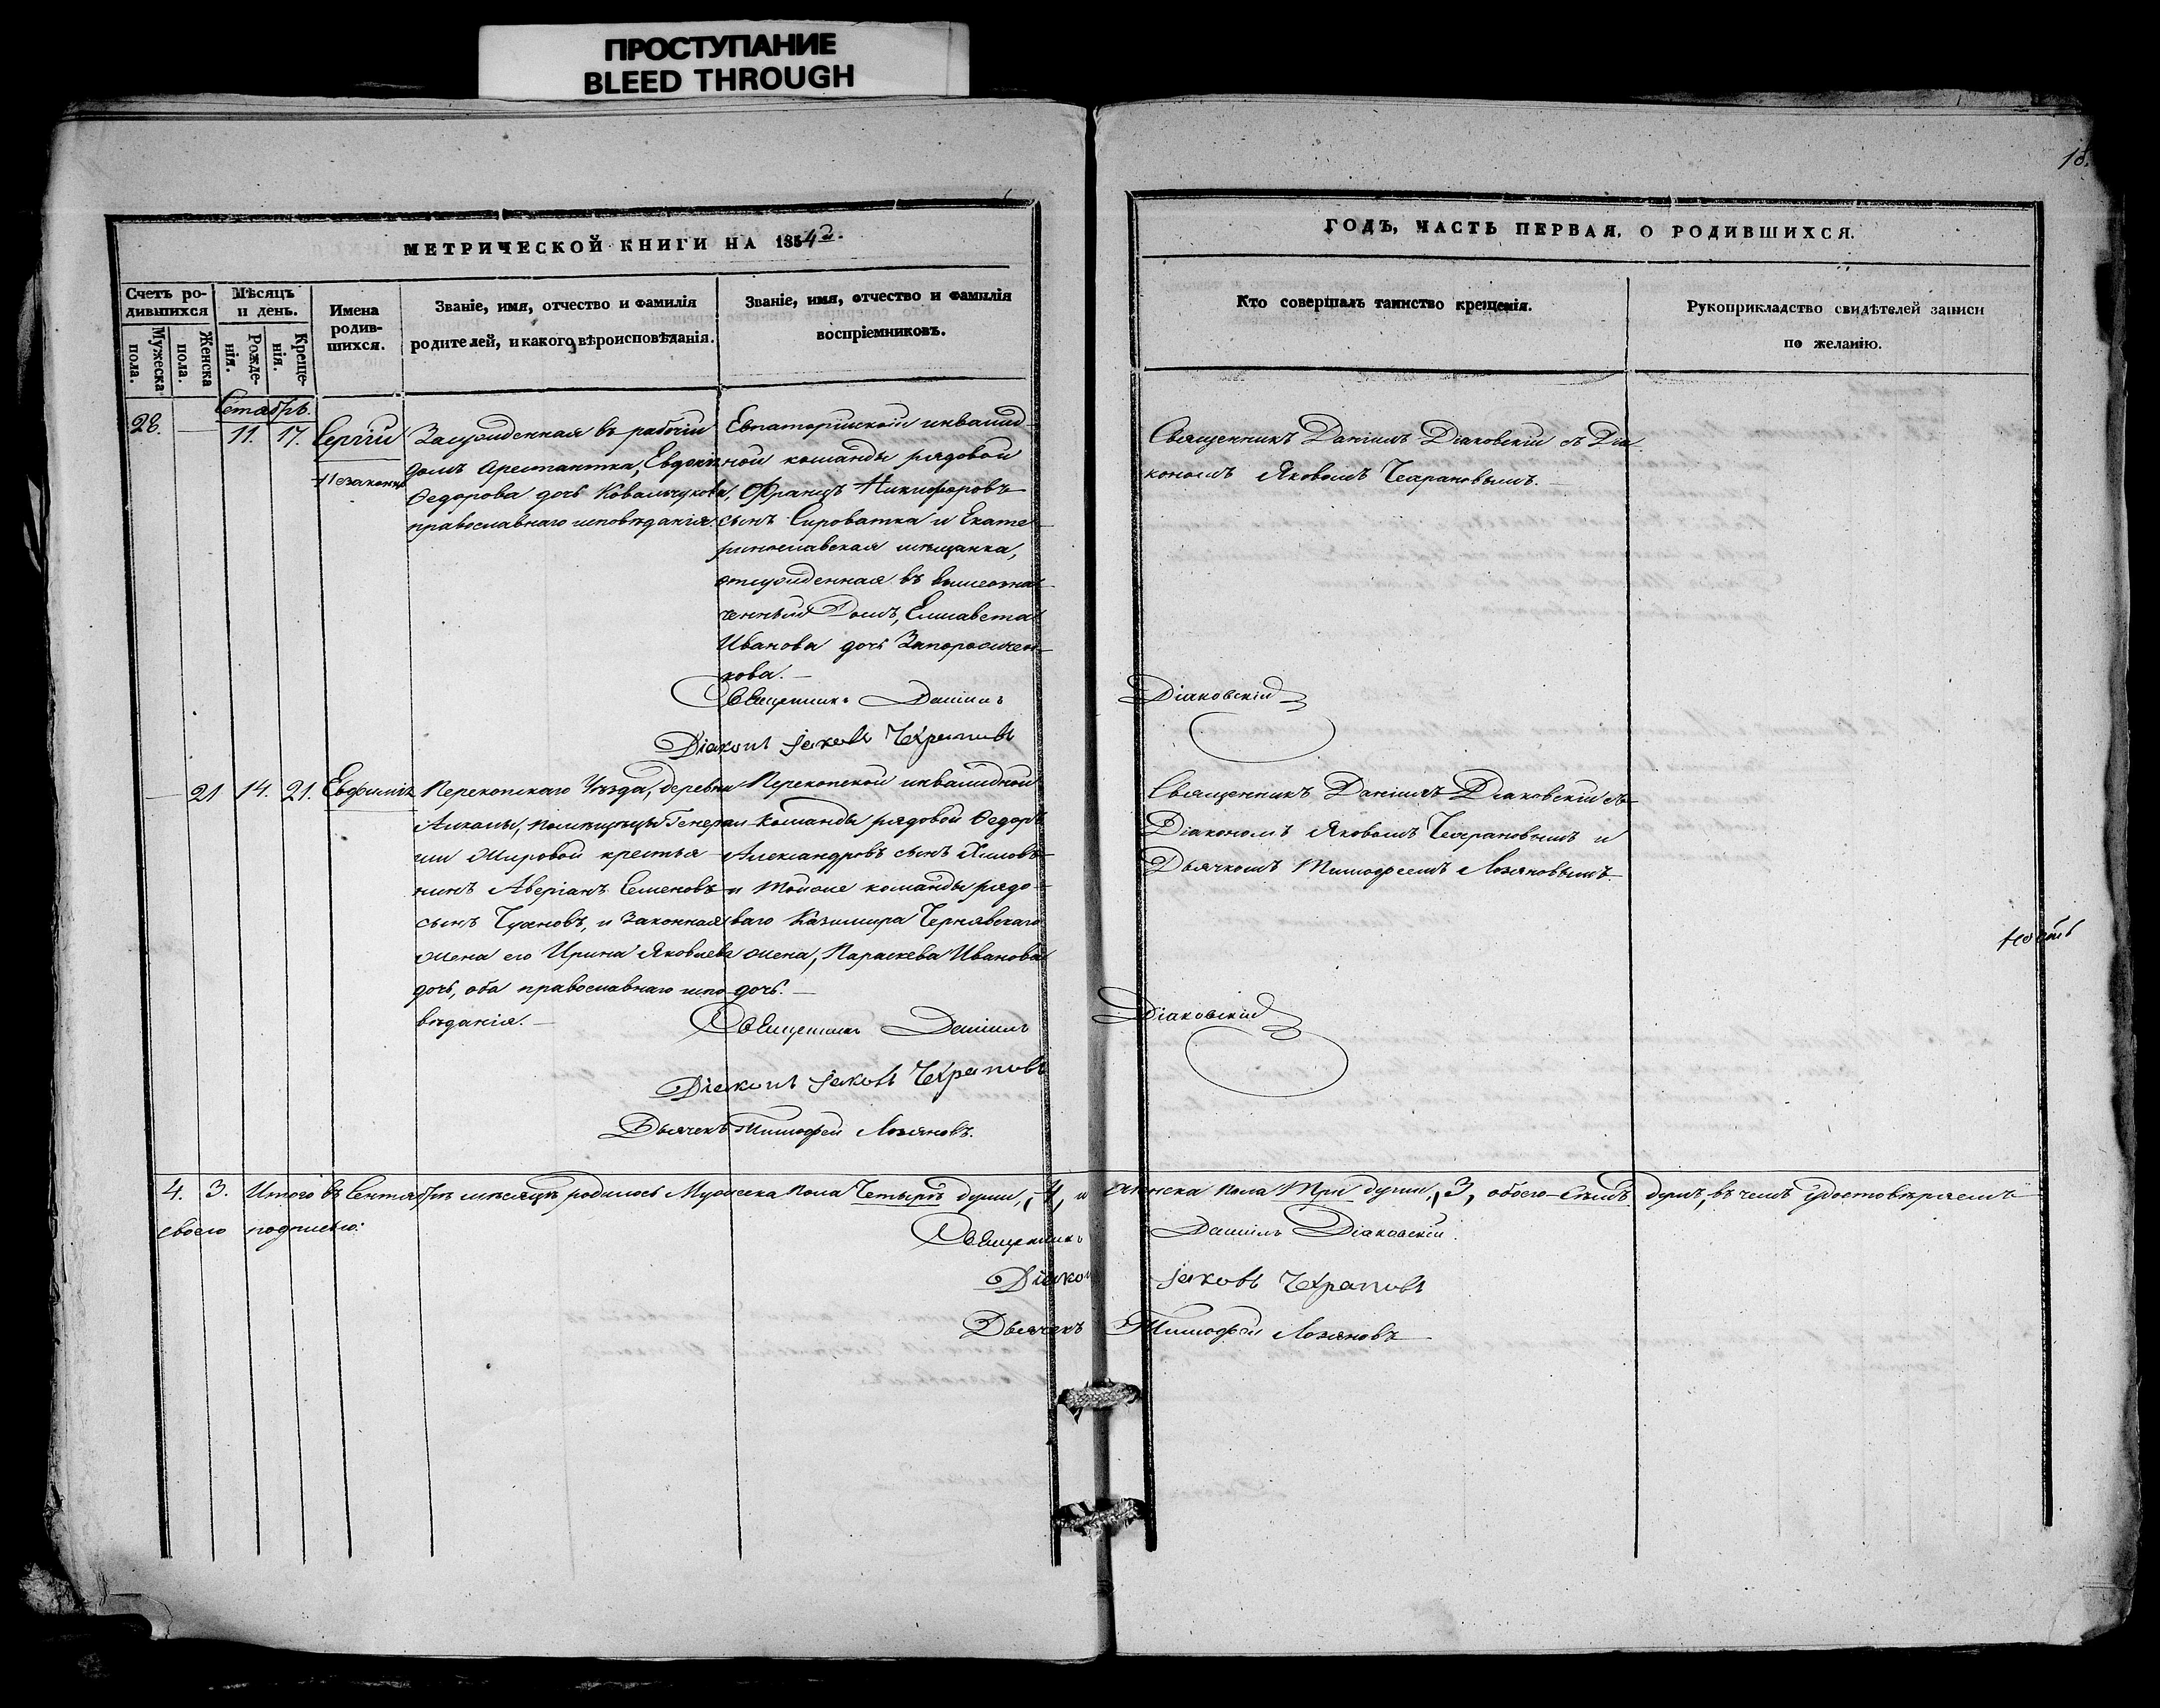 ПРОСТУПАНИЕ
BLEED THROUGH
18.
МЕТРИЧЕСКОЙ КНИГИ НА 1854й.
ГОДЪ, ЧАСТЬ ПЕРВАЯ, О РОДИВШИХСЯ.
Счетъ ро-
дившихся
Мужеска пола.
Женска пола.
Мѣсяцъ
и день.
Рожде-
нія.
Креще-
нія.
Имена
родив-
шихся.
Званіе, имя, отчество и Фамилія
родителей, и какого вѣроисповѣданія.
Званіе, имя, отчество и Фамилія
воспріемниковъ.
Кто совершалъ таинство крещенія.
Рукоприкладство свидѣтелей записи
по желанію.
28.
11.
17.
Сергій
Засужденная въ рабочій
домъ Арестантка, Евдокія
Ѳедорова дочь Ковальчукова,
православнаго исповѣданія.
Евпаторійской инвалид-
ной команды рядовой
Францъ Никифоровъ
сынъ Сироватка и Екате-
ринославская мѣщанка,
отсужденная въ вышеозна-
ченный Домъ, Елисавета
Иванова дочь
кова.
Священникъ Даніилъ Діаковскій съ Діа-
кономъ Яковомъ
Священникъ Даніилъ
Діаковскій
Діаконъ Іаковъ
21
14.
21.
Евфимія
Перекопскаго Уѣзда, деревни
помѣщицы Генерал-
ши крестья-
нинъ Аверіанъ Семеновъ
сынъ и законная
жена его Ирина Яковлева
дочь, оба православнаго испо-
вѣданія.
Перекопской инвалидной
команды рядовой Ѳедоръ
Александровъ сынъ
и тойже команды рядо-
ваго Казимира Чернявскаго
жена, Параскева Иванова
дочь.
Священникъ Даніилъ Діаковскій съ
Діакономъ Яковомъ и
Дьячкомъ Тимофеемъ
Священникъ Даніилъ
Діаковскій
Діаконъ Іаковъ
Дьячекъ Тимофей
4. 3. Итого въ Сентябрѣ мѣсяцѣ родилось Мужеска пола Четыре души, 4, и женска пола Три души, 3, обоего Семь душъ, въ чемъ удостовѣряемъ
своею подписью:
Священникъ Даніилъ Діаковскій.
Діаконъ Іаковъ
Дьячекъ Тимофей